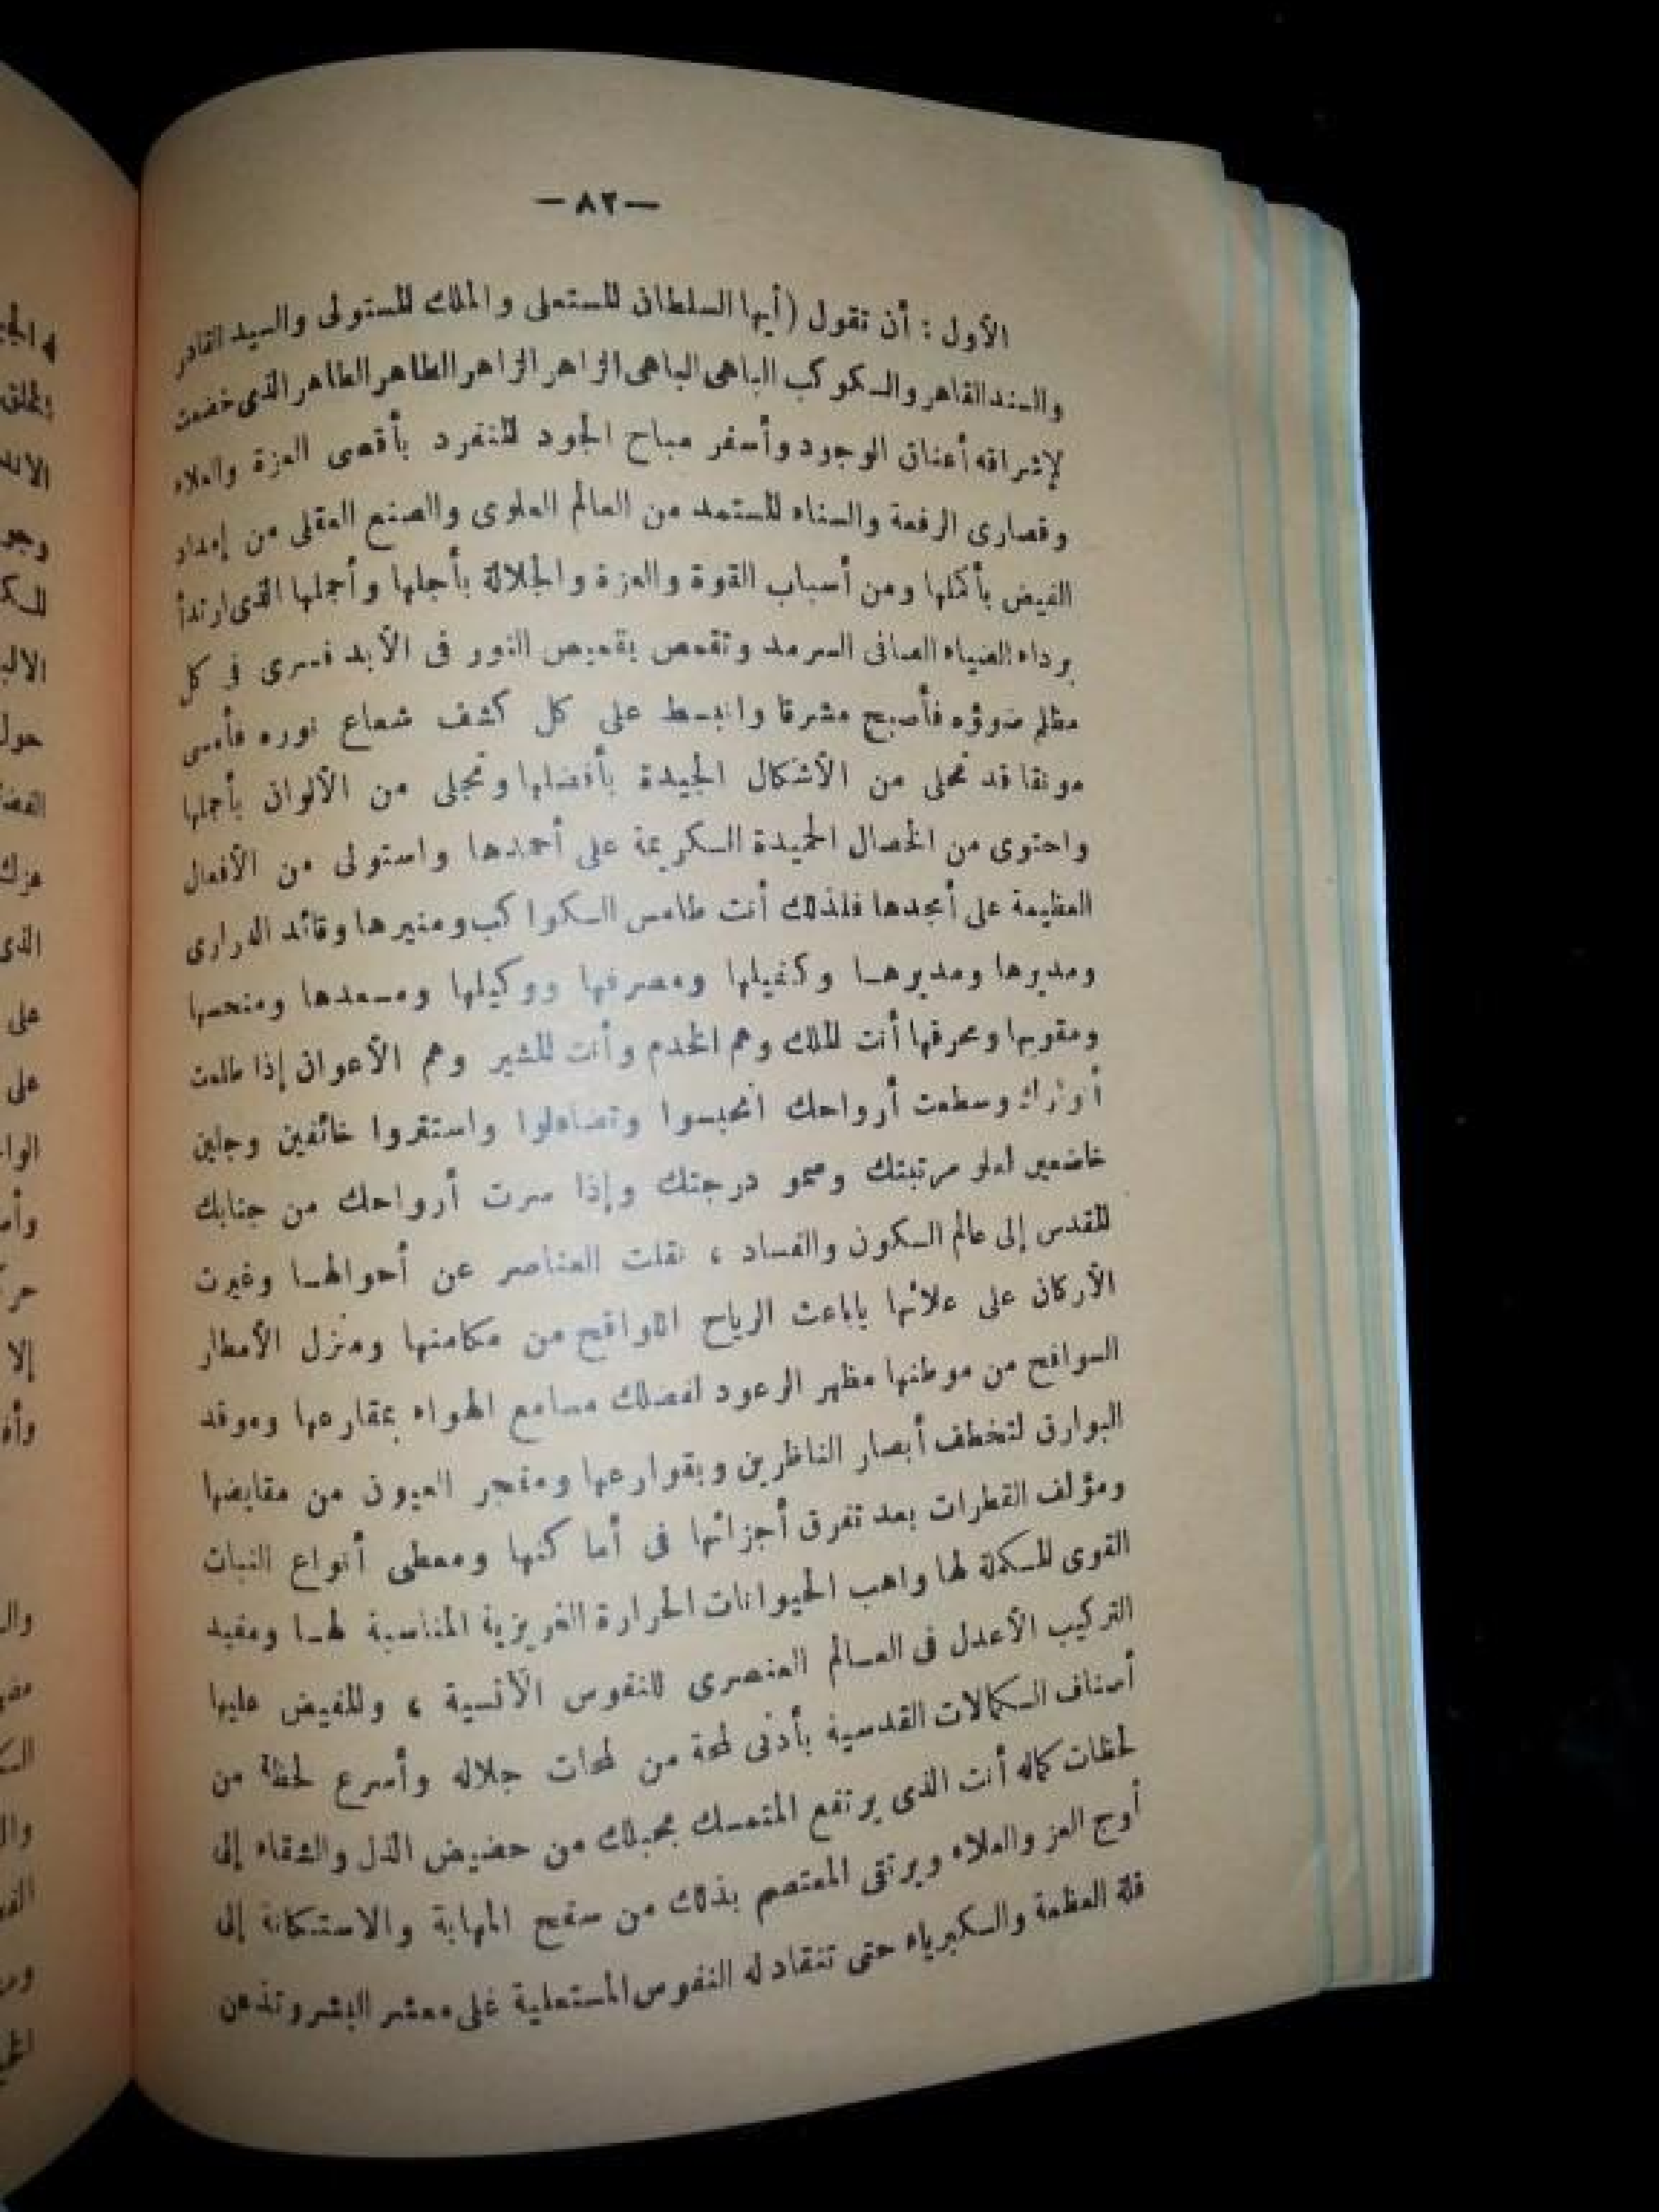 — ٨٢ —
الأول : أن تقول (أيها السلطان المستعلى والملك المستولى والسيد القادر
والسند القاهر والكوكب الباهى الباهى الزاهر الزاهر الطاهر الطاهر الذى خضعت
لإشراقه أعناق الوجود وأسفر صباح الجود المنفرد بأقصى العزة والعلاء
وقصارى الرفعة والسناء المستمد من العالم العلوى والصنع العقلى من إمداد
الفيض بأكملها ومن أسباب القوة والعزة والجلالة بأجلها وأجملها الذى ارتدأ
برداء الضياء الصافى السرمد وتقمص بقميص النور فى الأبد فسرى فى كل
مظلم ضوؤه فأصبح مشرقا وانبسط على كل كشف شعاع نوره فأمسى
مونقا قد تحلى من الأشكال الجيدة بأفضلها وتجلى من الألوان بأجملها
واحتوى من الخصال الحميدة الكريمة على أحمدها واستولى من الأفعال
العظيمة على أمجدها فلذلك أنت طامس الكواكب ومنيرها وقائد الدرارى
ومديرها ومدبرها وكفيلها ومصرفها ووكيلها ومسعدها ومنحسها
ومقويها ومحرقها أنت الملك وهم الخدم وأنت المشير وهم الأعوان إذا طلعت
أنوارك وسطعت أرواحك انحبسوا وتضاءلوا واستقروا خائفين وجلين
خاضعين لعلو مرتبتك وسمو درجتك وإذا سرت أرواحك من جنابك
المقدس إلى عالم الكون والفساد ، نقلت العناصر عن أحوالها وغيرت
الأركان على علائها ياباعث الرياح اللواقح من مكامنها ومنزل الأمطار
السوافح من موطنها مظهر الرعود لفضلك مسامع الهواء بمقارعها وموقد
البوارق لتخطف أبصار الناظرين وبقوارعها ومفجر العيون من مقابضها
ومؤلف القطرات بعد تفرق أجزائها فى أماكنها ومعطى أنواع النبات
القوى المكملة لها واهب الحيوانات الحرارة الغريزية المناسبة لها ومفيد
التركيب الأعدل فى العالم العنصرى للنفوس الأنسية ، والمفيض عليها
أصناف الكمالات القدسية بأدنى لمحة من لمحات جلاله وأسرع لحظة من
لحظات كماله أنت الذى يرتفع المتمسك بحبلك من حضيض الذل والشقاء إلى
أوج العز والعلاء ويرتقى المعتصم بذلك من سفح المهابة والاستكانة إلى
قلة العظمة والكبرياء حتى تنقاد له النفوس المستعلية على معشر البشر وتذعن